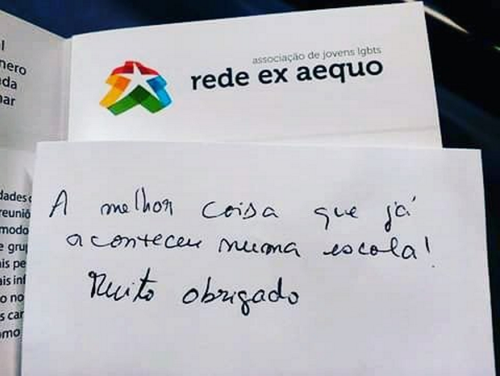 associação de jovens lgbts
rede ex aequo
A melhor coisa que já
aconteceu numa escola!
Muito obrigado
l
nero
da
nar
dades
reuniõ
modo
e gru
is pe
is inf
o no
s car
omo